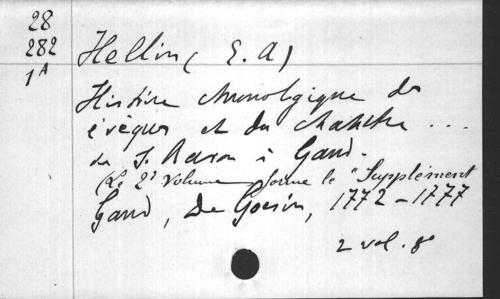 28
282
1A
Hellin (E. A)
Histoire chronologique des
évèques et du chapitre ...
de S. Bavon à Gand.
(Le 2e volume forme le "Supplément
Gand, De Goesin, 1772-1777
2 vol. 8°